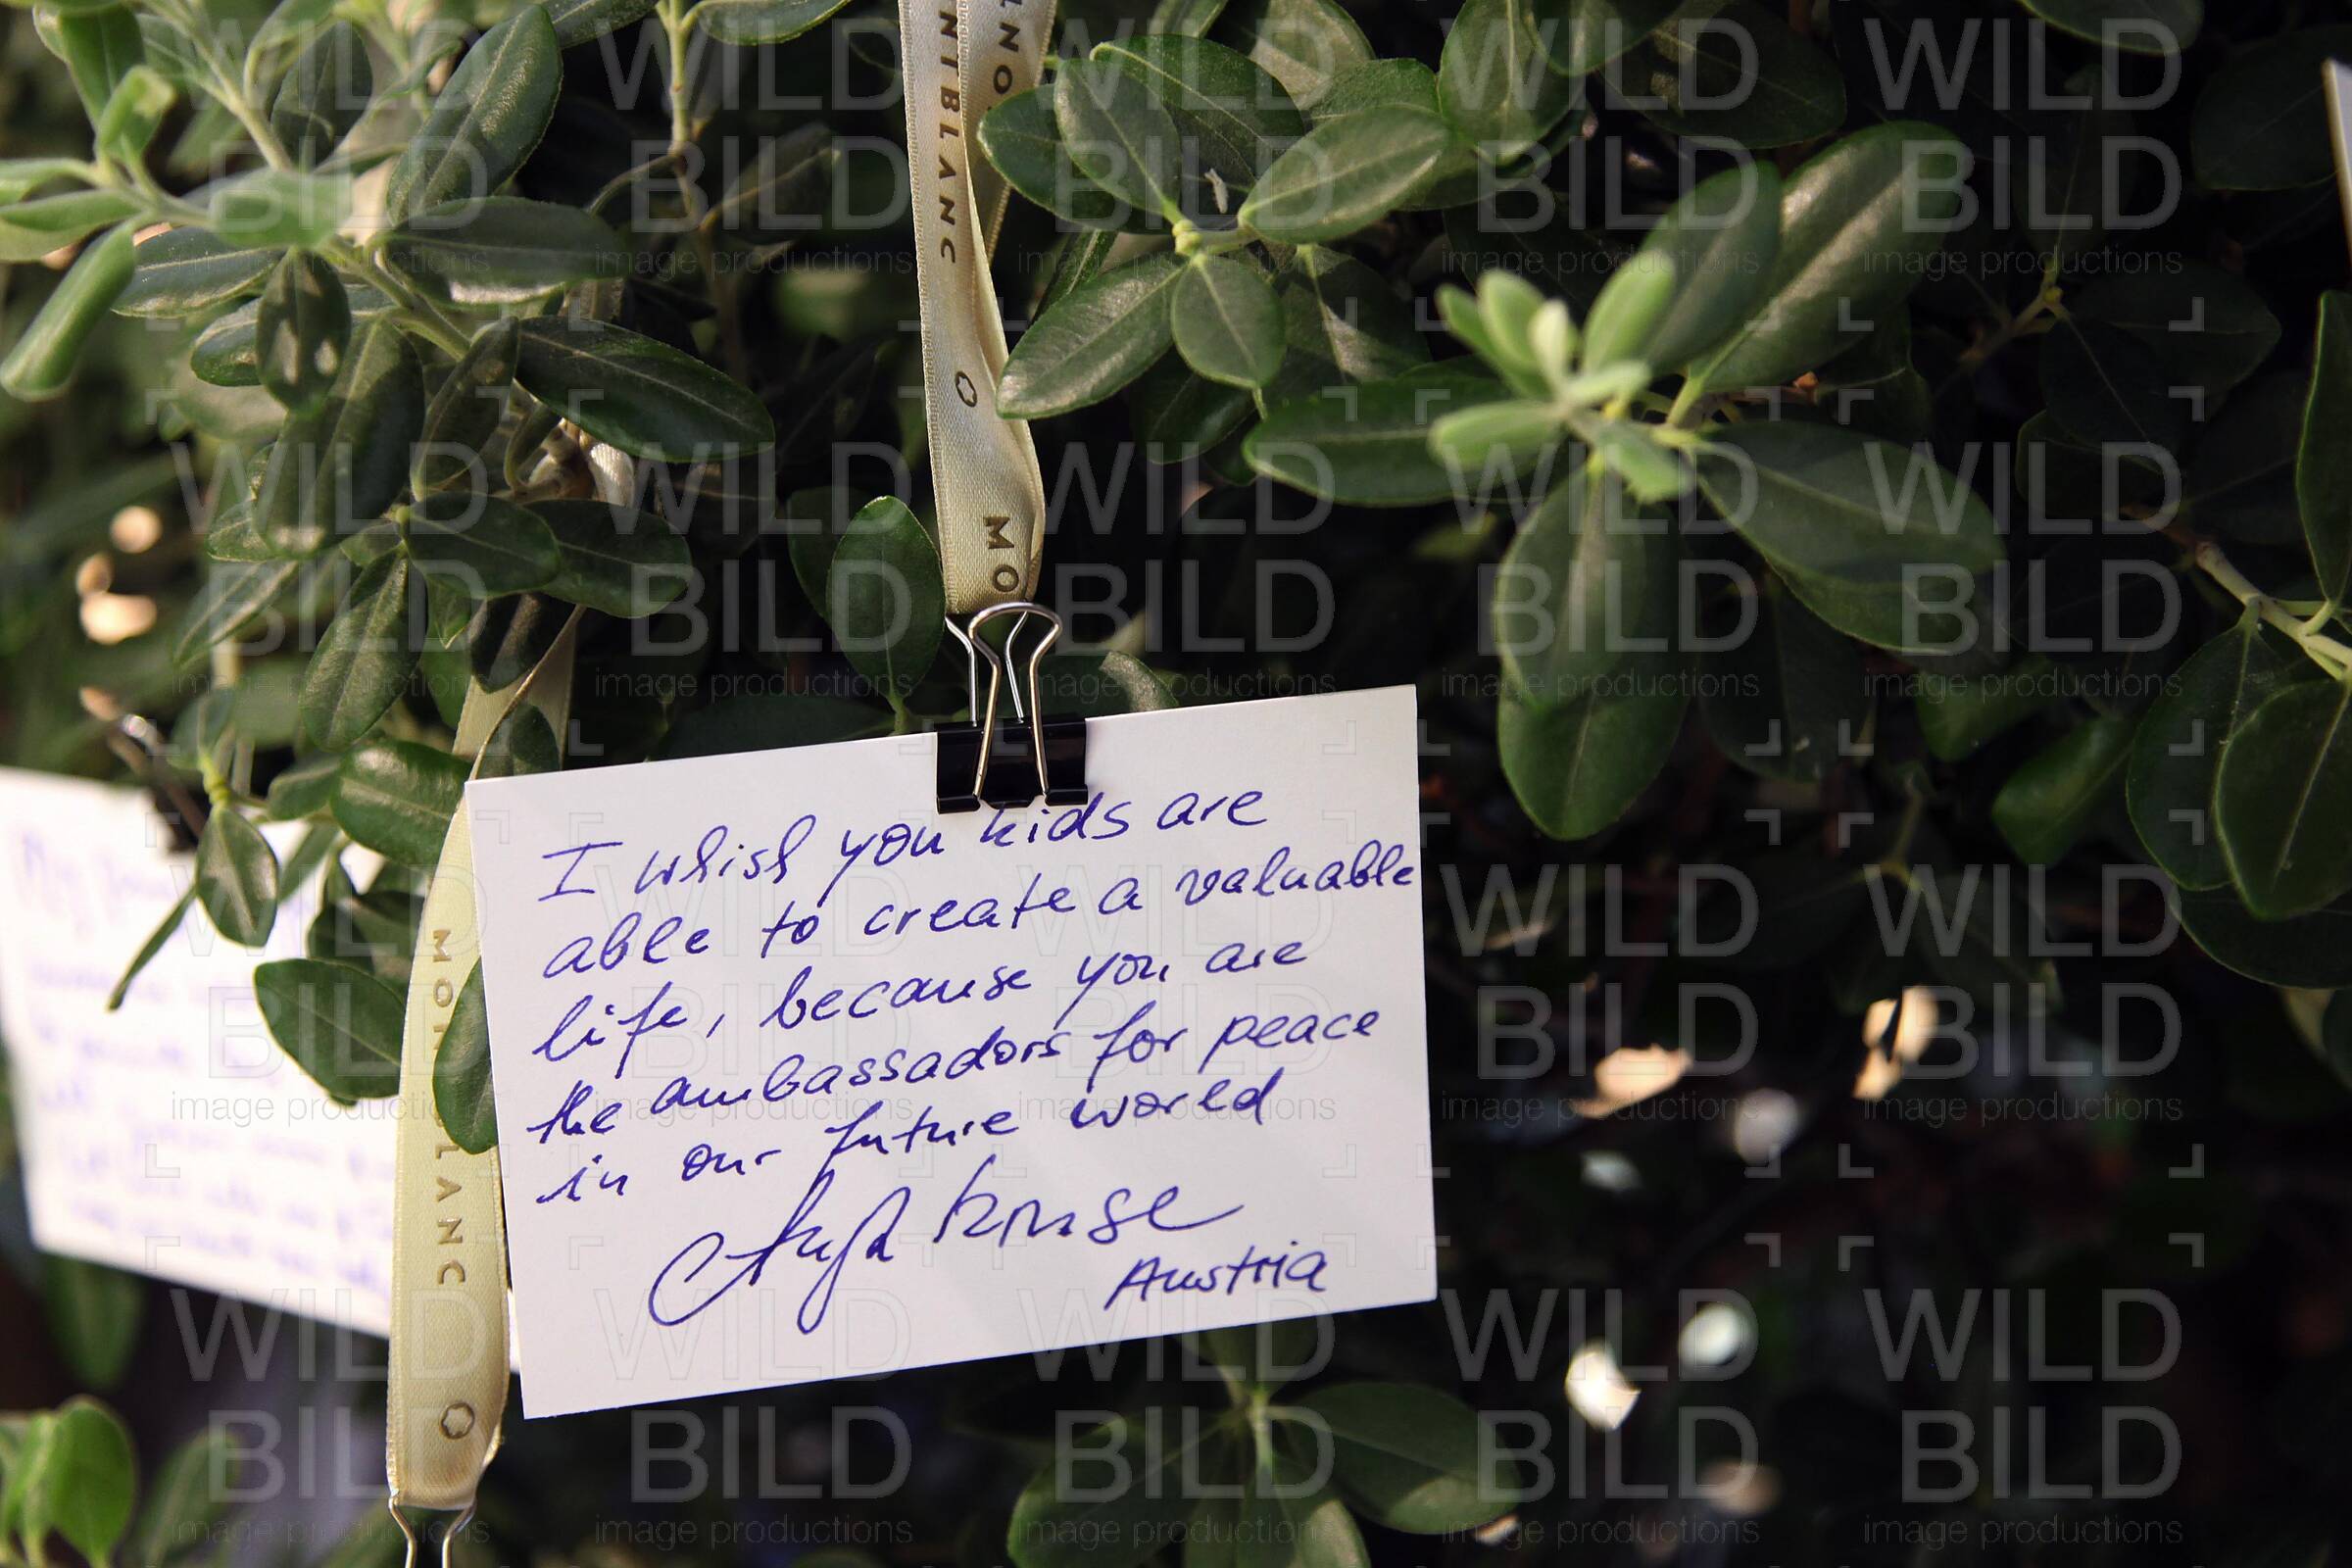 MONTBLANC
MO
I whish you kids are
able to create a valuable
life, because you are
the ambassadors for peace
in our future world
Kruse
Austria
MONTBLANC
WILD
BILD
image productions